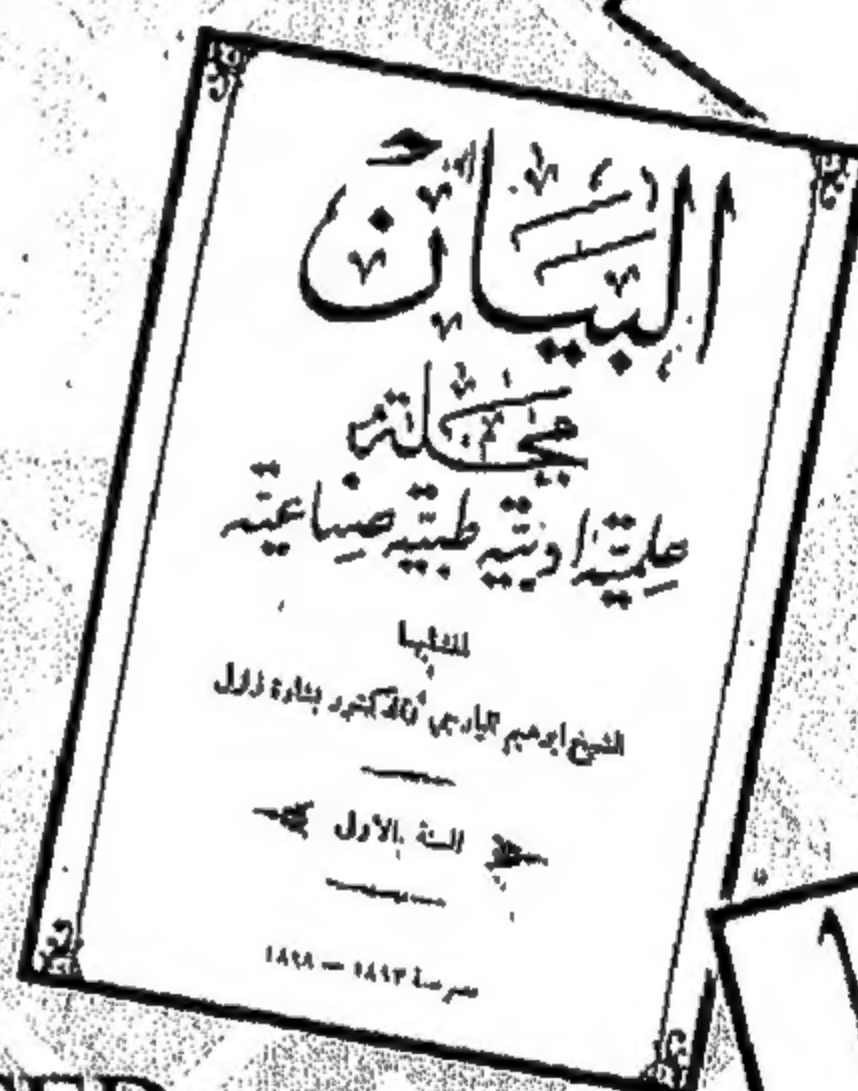 البَيَانُ
مَجَلَّة
علميَّة ادبيَّة طبيَّة صِناعيَّة
لمنشئيها
الشيخ ابرهيم اليازجي والدكتور بشارة زلزل
السنة الاولى
مصر سنة ١٨٩٧ — ١٨٩٨